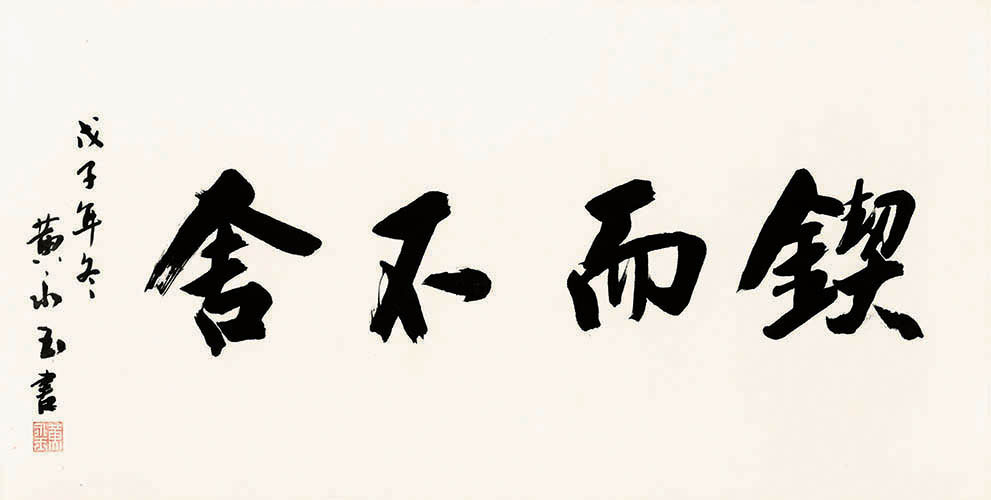 鍥而不舍
戊子年冬
黄永玉書